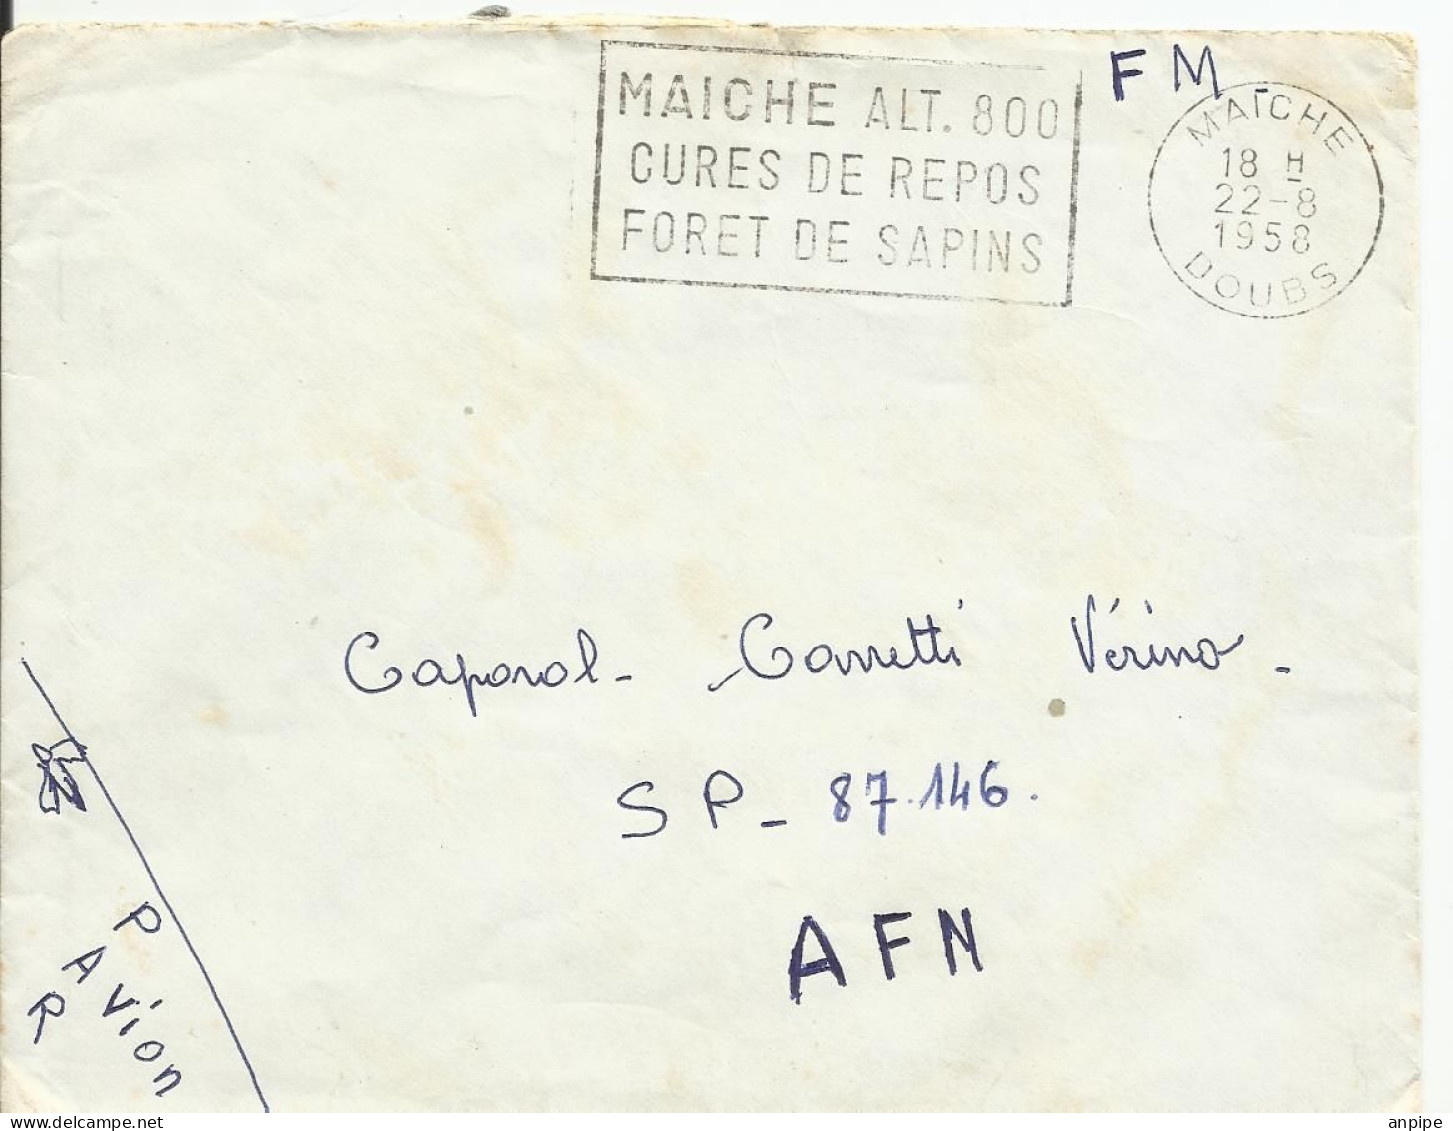 MAICHE ALT. 800
CURES DE REPOS
FORET DE SAPINS
F M
MAICHE
18 H
22-8
1958
DOUBS
Caporal - Carretti Vérino -
SP - 87.146.
AFN
PAR
Avion
delcampe.net
anpipe